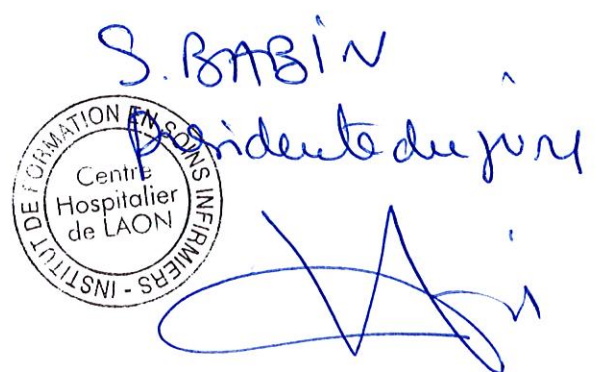 S. BABIN
Présidente du jury
INSTITUT DE FORMATION EN SOINS INFIRMIERS -
Centre
Hospitalier
de LAON